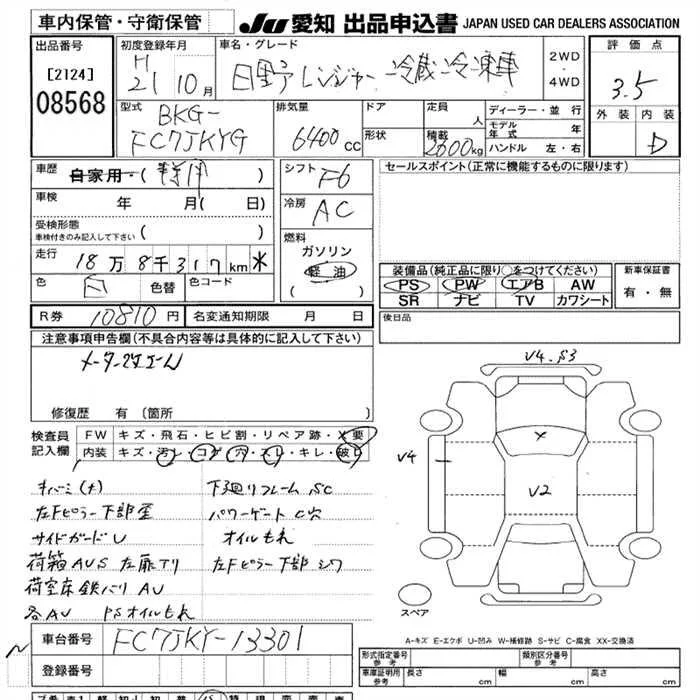 車内保管・守衛保管
JU 愛知 出品申込書 JAPAN USED CAR DEALERS ASSOCIATION
出品番号
[2124]
08568
初度登録年月
H
21 10月
車名・グレード
日野レンジャー 冷蔵冷凍車
2WD・4WD
評価点
3.5
外装 内装
D
型式
BKG-
FC7JKYG
排気量
6400cc
ドア
形状
定員 人
積載 2600kg
ディーラー・並行
モデル年式 年
ハンドル 左・右
車歴 自家用・( )
車検 年 月( 日)
受検形態
車検付きのみ記入して下さい ( )
走行 18万8千317km
色 白 色替 色コード
シフト F6
冷房 AC
燃料
ガソリン
軽油
( )
セールスポイント(正常に機能するものに限ります)
装備品(純正品に限り○をつけてください)
PS PW エアB AW
SR ナビ TV カワシート
新車保証書
有・無
R券 10810円 名変通知期限 月 日
後日品
注意事項申告欄(不具合内容等は具体的に記入して下さい)
修復歴 有 (箇所
検査員記入欄
FW キズ・飛石・ヒビ割・リペア跡・X要
内装 キズ・汚レ・コゲ・穴・スレ・キレ・破レ
キバミ(大) 下廻りフレームSC
左Fピラー下部歪 パワーゲートC穴
サイドガードU オイルもれ
荷箱AUS 左扉 左Fピラー下部シワ
荷室床鉄バリ AU
各AU PSオイルもれ
V4.S3
V4
X
V2
スペア
A-キズ E-エクボ U-凹み W-補修跡 S-サビ C-腐食 XX-交換済
車台番号 FC7JKY-13301
登録番号
形式指定番号 参考 類別区分番号 参考
車庫証明用 参考 長さ cm 幅 cm 高さ cm